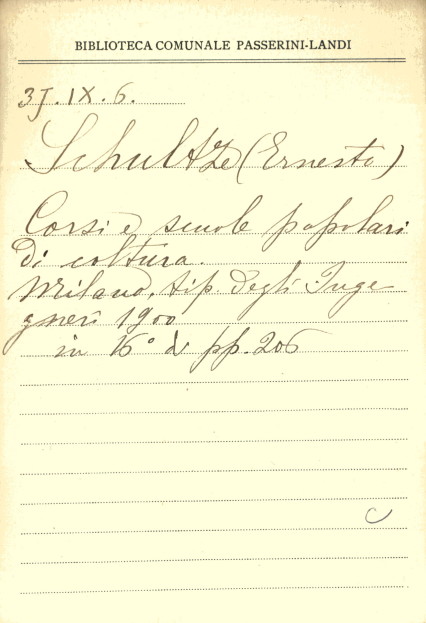 BIBLIOTECA COMUNALE PASSERINI-LANDI
3J.IX.6.
Schultze (Ernesto)
Corsi e scuole popolari
di coltura.
Milano, tip. degli Inge
gneri 1900
in 16° di pp. 206